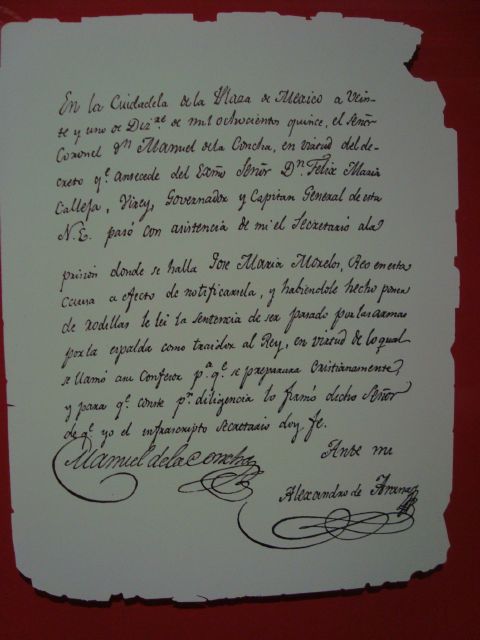 En la Cuidadela de la Plaza de Mexico a Vein-
te y uno de Diz.re de mil ochocientos quince, el Señor
Coronel Dn Manuel de la Concha, en virtud del de-
creto q.e antecede del Exmo Señor Dn. Felix Maria
Calleja, Virey, Governador y Capitan General de esta
N.E. pasó con asistencia de mi el Secretario ala
prision donde se halla Jose Maria Morelos, Reo en esta
causa a efecto de notificarsela, y habiendole hecho poner
de rodillas le lei la sentencia de ser pasado por las armas
por la espalda como traidor al Rey, en virtud de lo qual
se llamó a un Confesor p.a q.e se preparara Cristianamente,
y para q.e conste p.r diligencia lo firmó dicho Señor
de q.e yo el infrascripto secretario doy fe.
Manuel de la Concha
Ante mi
Alexandro de Arana